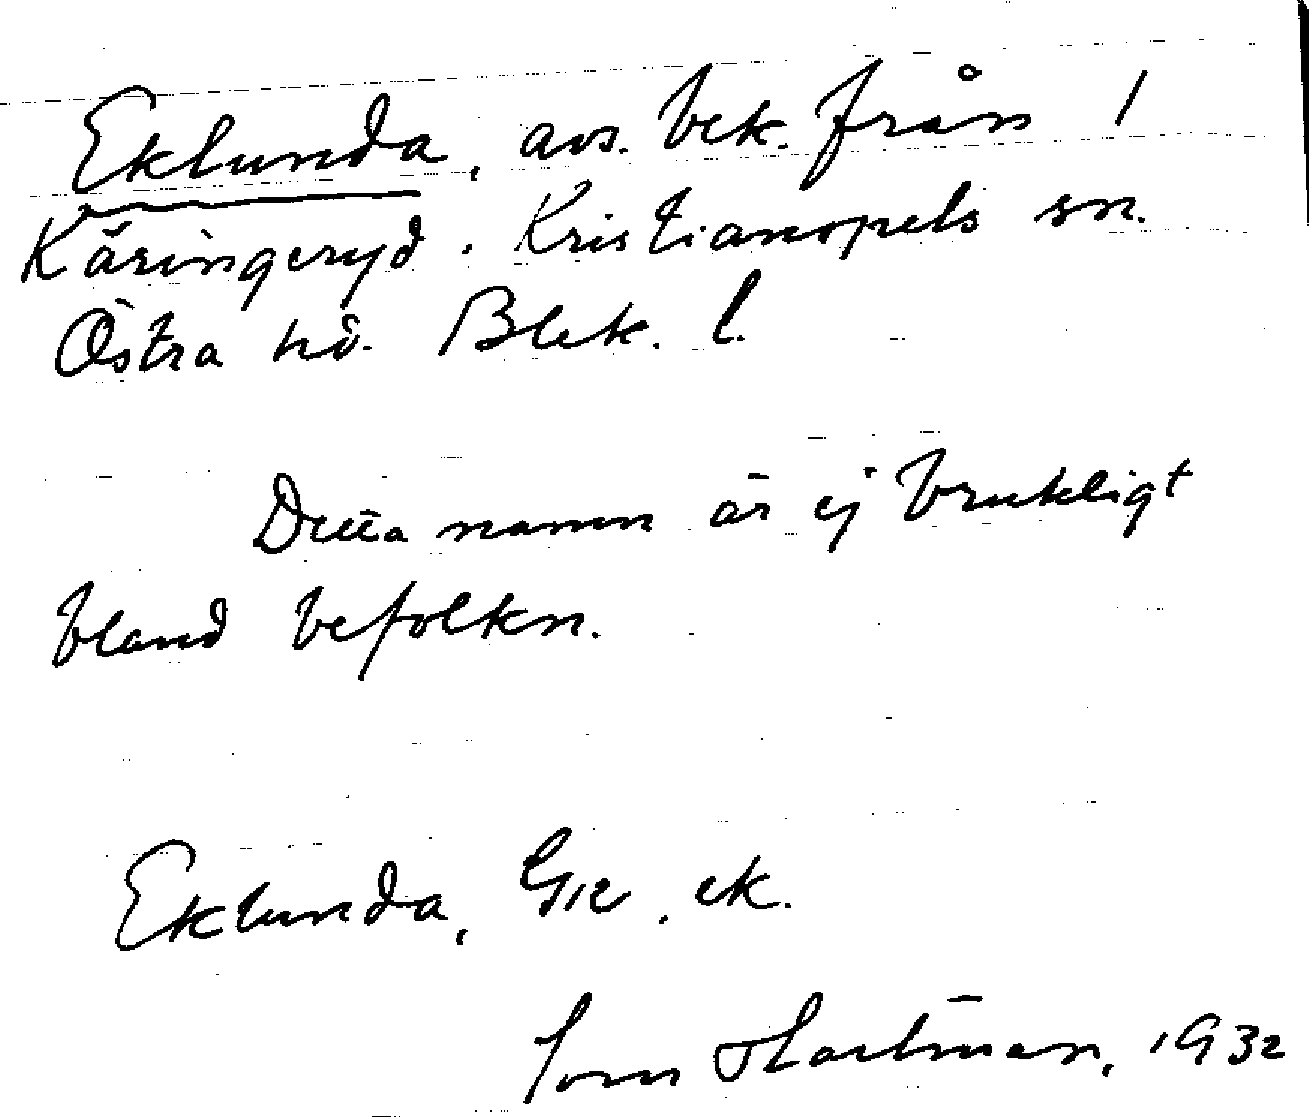 Eklunda, avs. bek. från 1
Käringeryd. Kristianopels sn.
Östra hd. Blek. l.
Detta namn är ej brukligt
bland befolkn.
Eklunda, ek.
1932